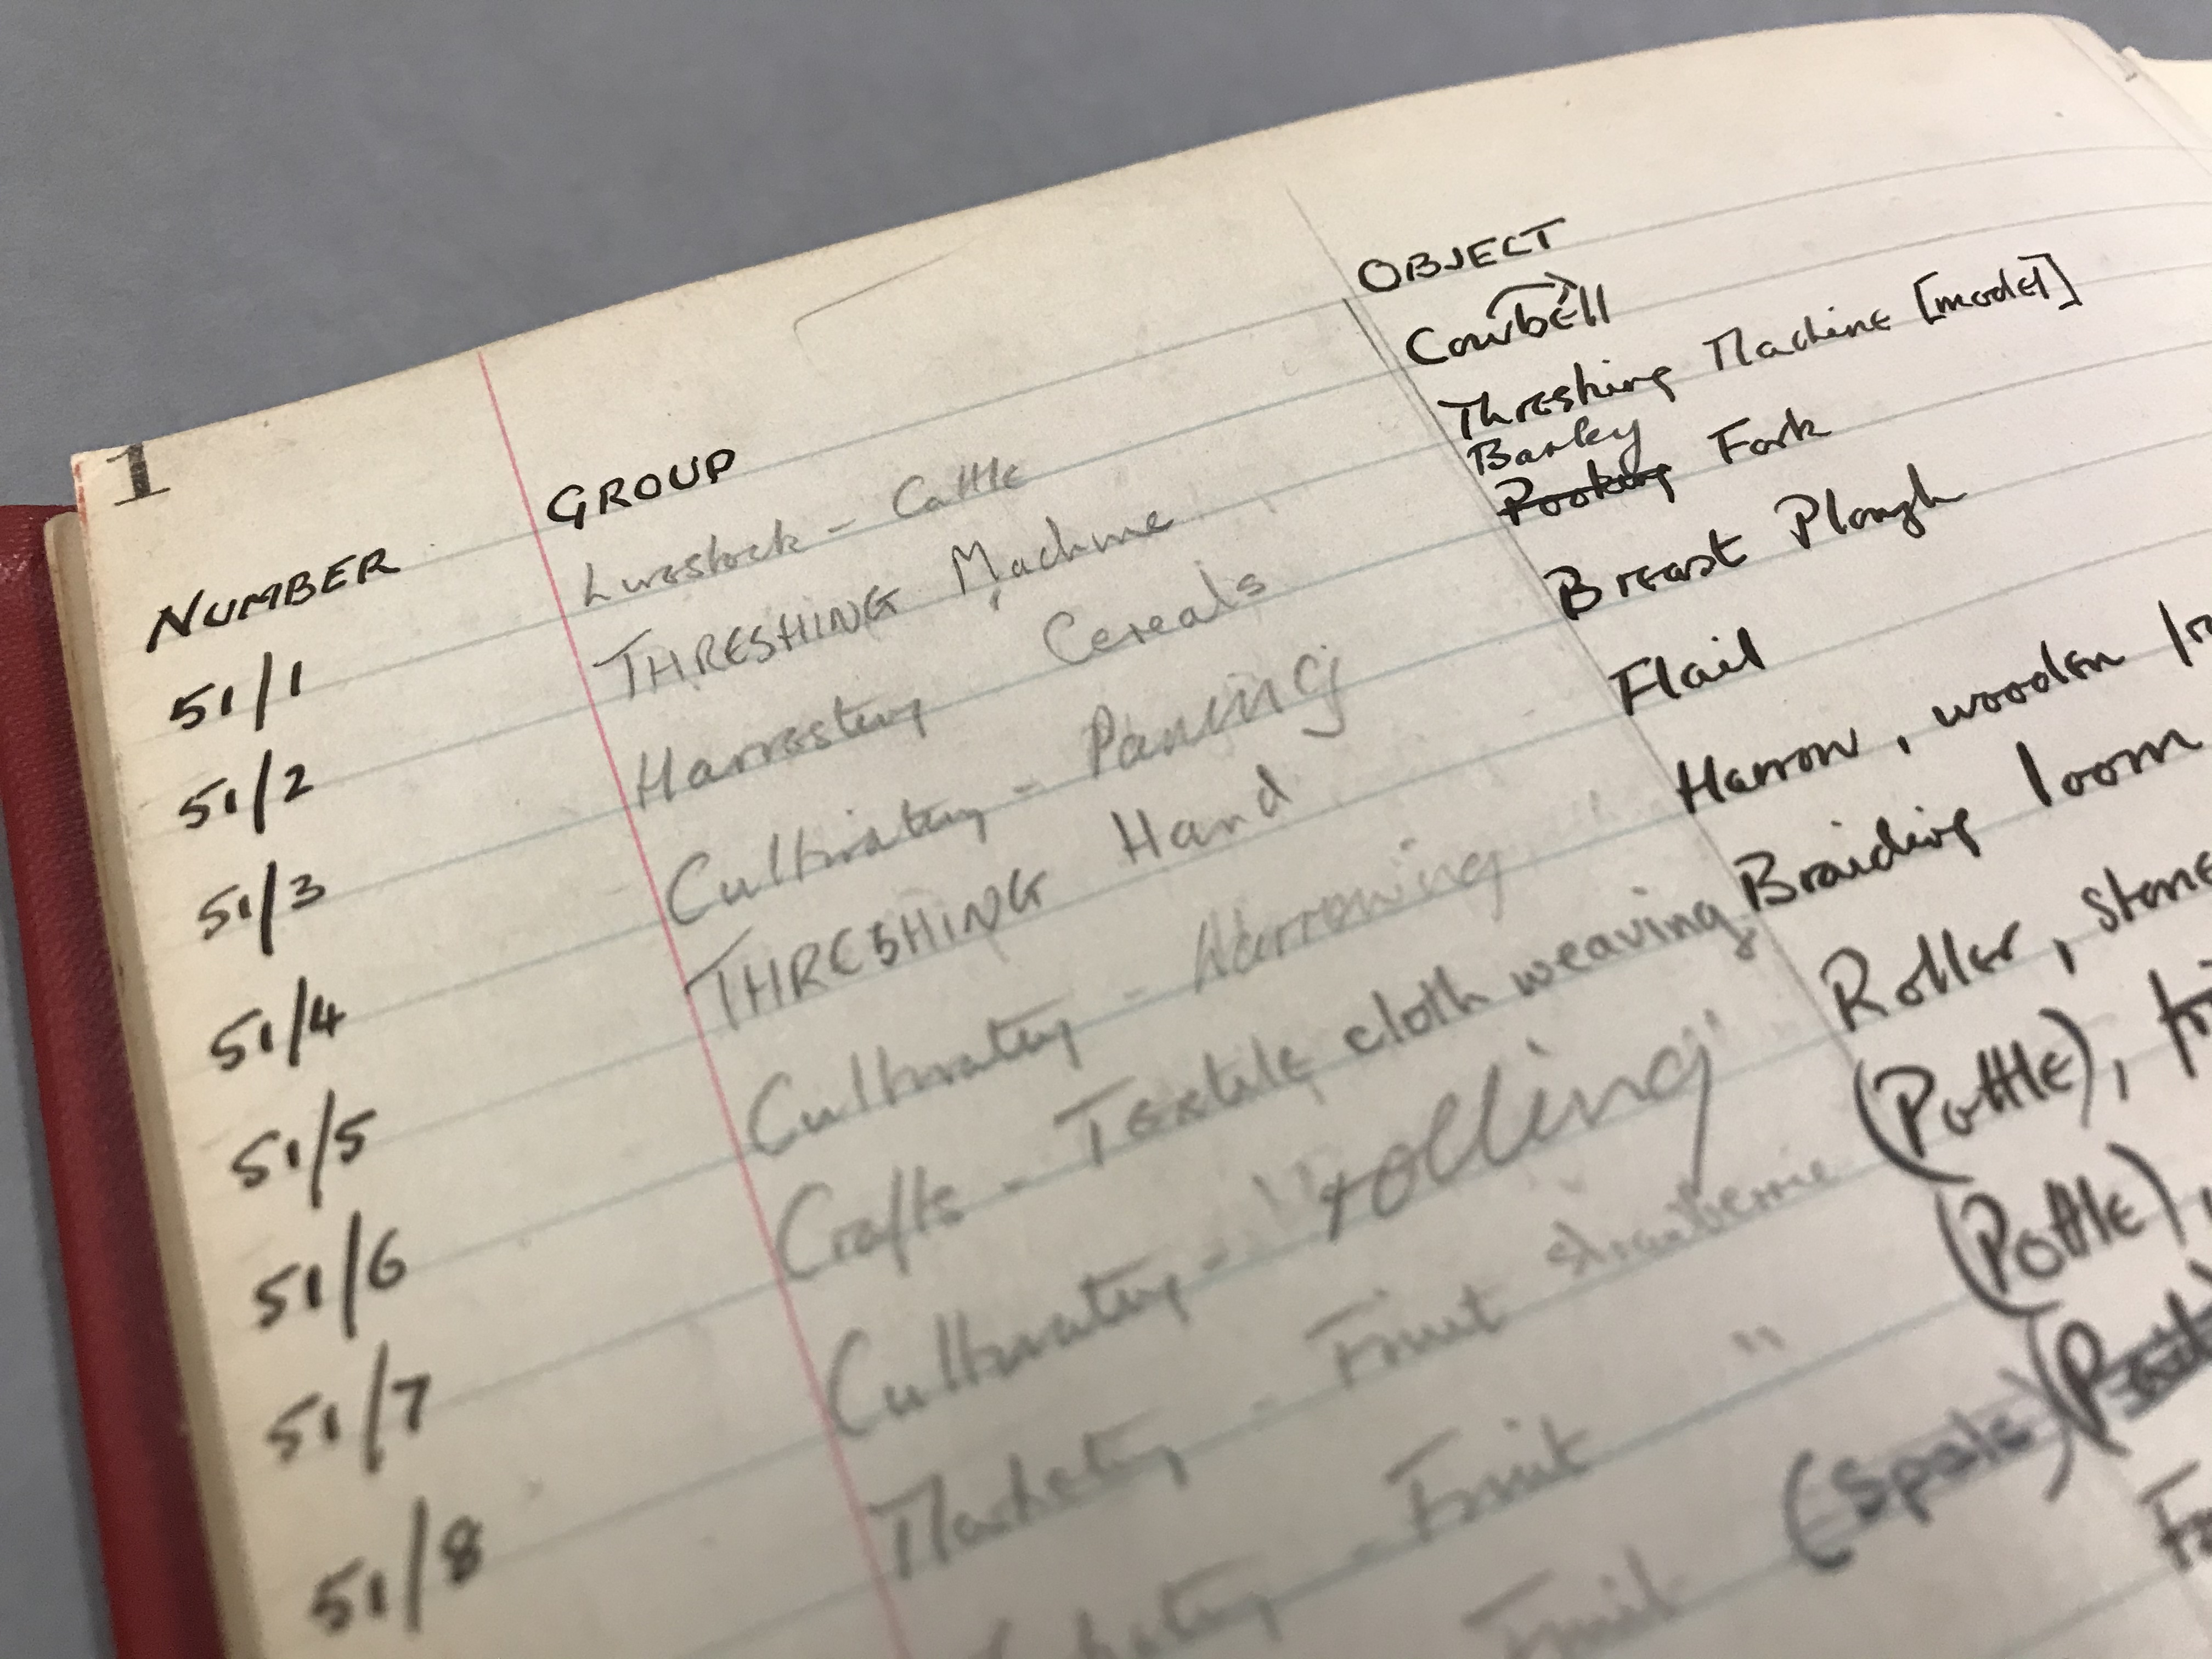 1
NUMBER GROUP OBJECT
51/1 Livestock - Cattle Cowbell
51/2 THRESHING Machine Threshing Machine [model]
Barley
51/3 Harvesting Cereals Pooking Fork
51/4 Cultivating - Paring Breast Plough
51/5 THRESHING Hand Flail
51/6 Cultivating - Harrowing Harrow, wooden
51/7 Crafts - Textile cloth weaving Braiding loom
51/8 Cultivating - "rolling" Roller, stone
Marketing - Fruit strawberrie (Pottle),
- Fruit " (Pottle),
Fruit (Spale)